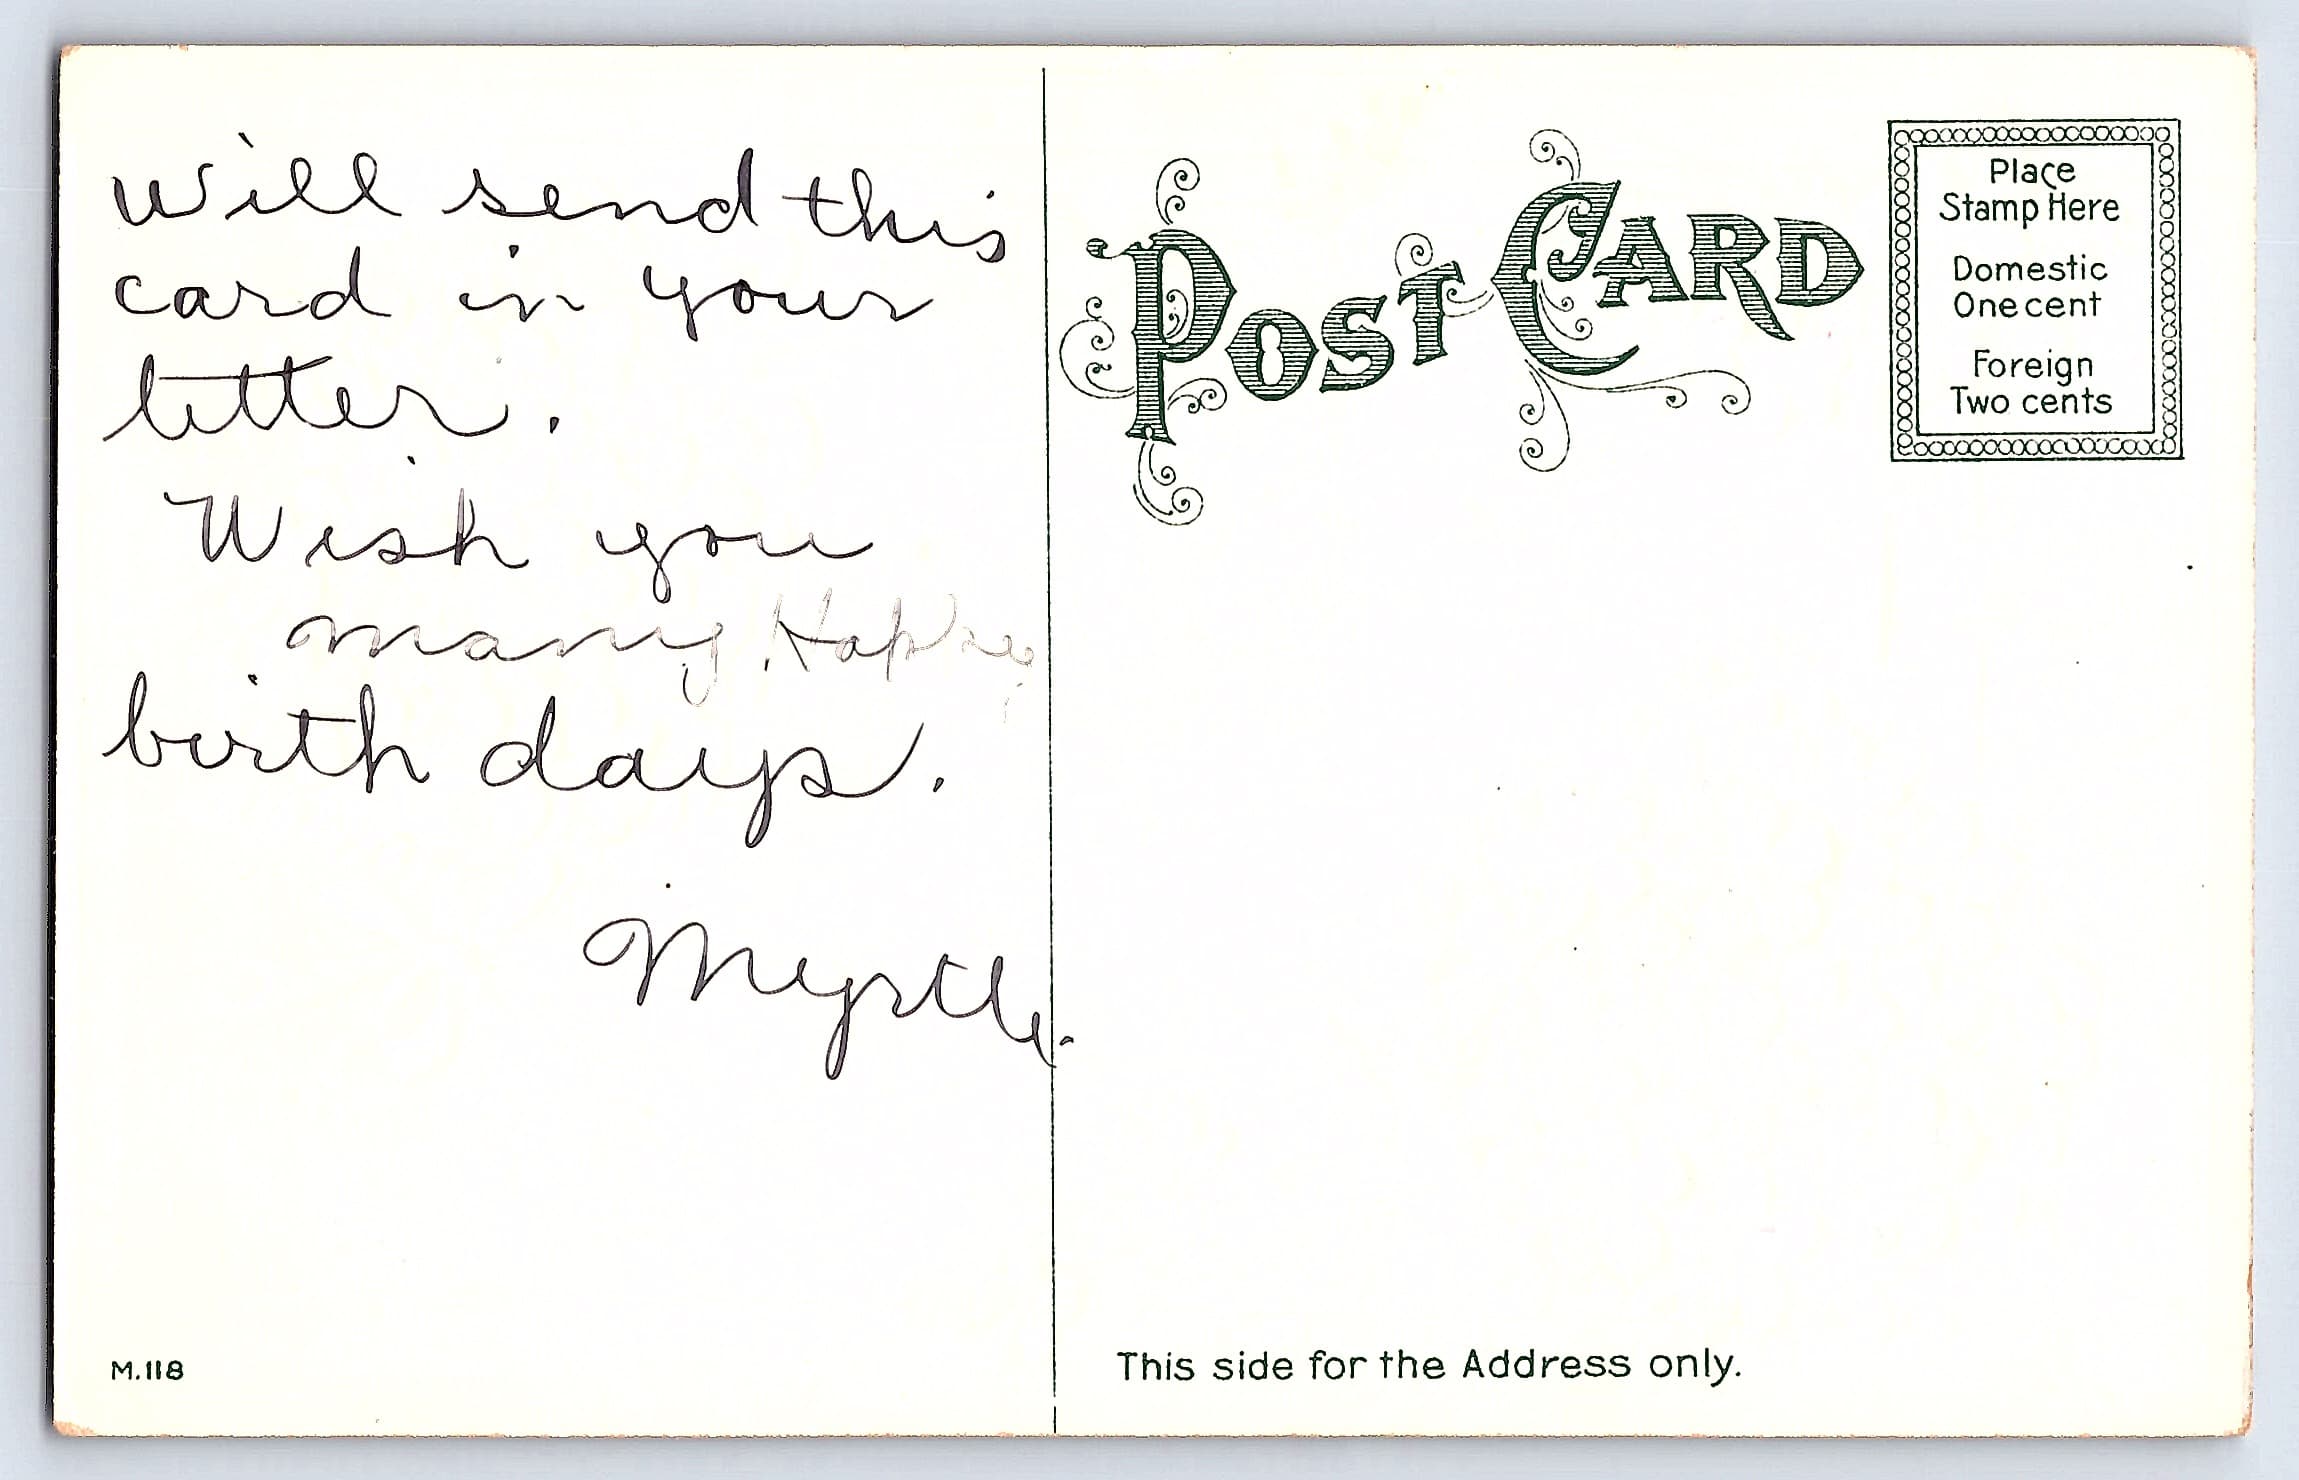 Will send this
card in your
letter.
Wish you
many Happy
birth days.
Myrtle.
M.118
POST CARD
Place
Stamp Here
Domestic
One cent
Foreign
Two cents
This side for the Address only.